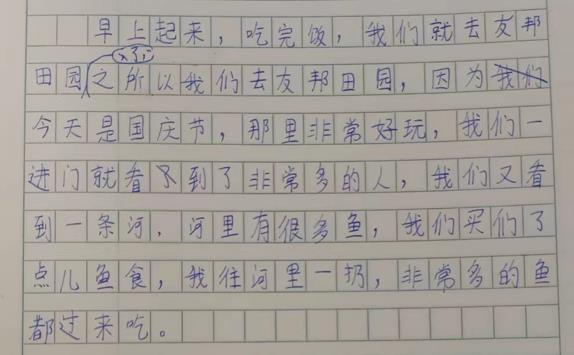 早上起来，吃完饭，我们就去友邦
田园了，之所以我们去友邦田园，因为我们
今天是国庆节，那里非常好玩，我们一
进门就看不到了非常多的人，我们又看
到一条河，河里有很多鱼，我们买们了
点儿鱼食，我往河里一扔，非常多的鱼
都过来吃。